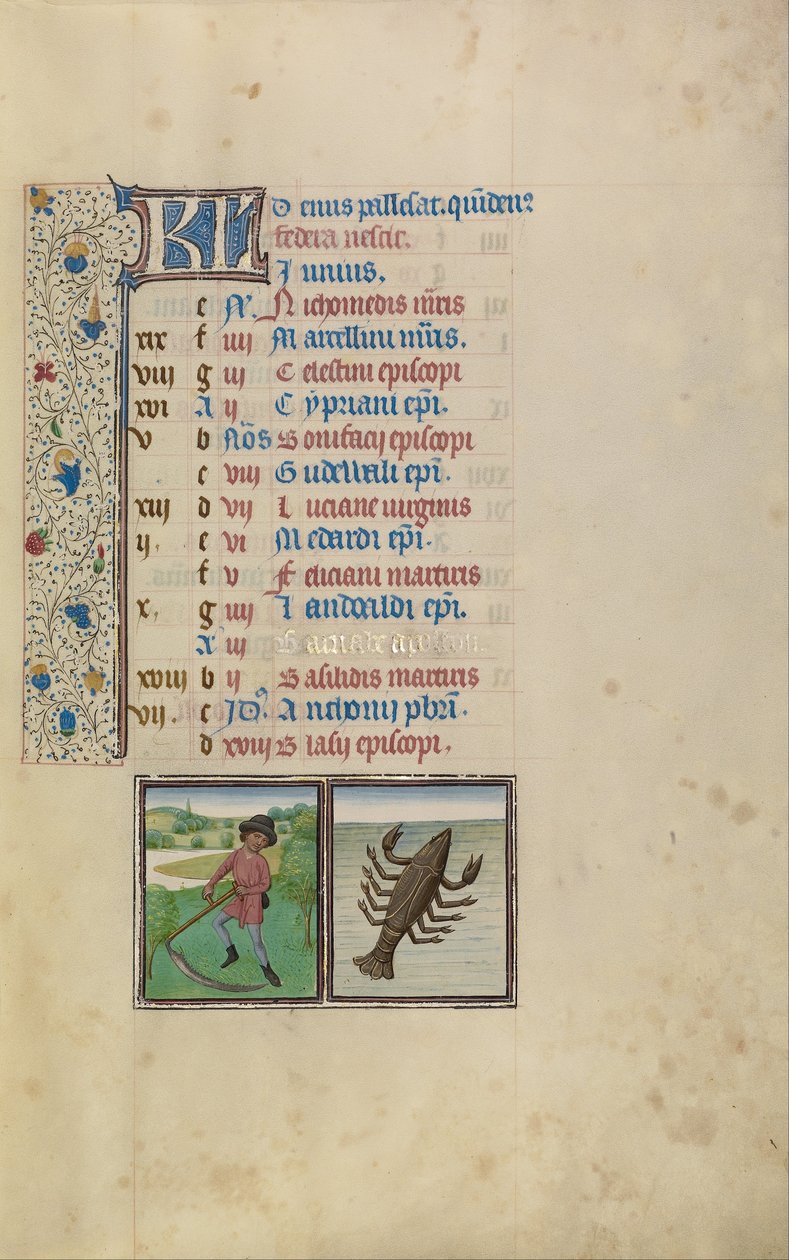 KL Denus pallesat. quĩdenꝰ
federa nescit.
Junius.
e N. Nichomedis m̃ris
xix f iiij Marcellini m̃ris.
viij g iij Celestini episcopi
xvi A ij Cypriani ep̃i.
v b Nõs Bonifacij episcopi
c viij Gudewali ep̃i.
xiij d vij Luciane uirginis
ij. e vi Medardi ep̃i.
f v Feliciani martiris
x. g iiij Landoaldi ep̃i.
A iij Barnabe apostoli.
xviij b ij Basilidis martiris
vij. c ID9. Anthonij pbr̃i.
d xviij Blasij episcopi.